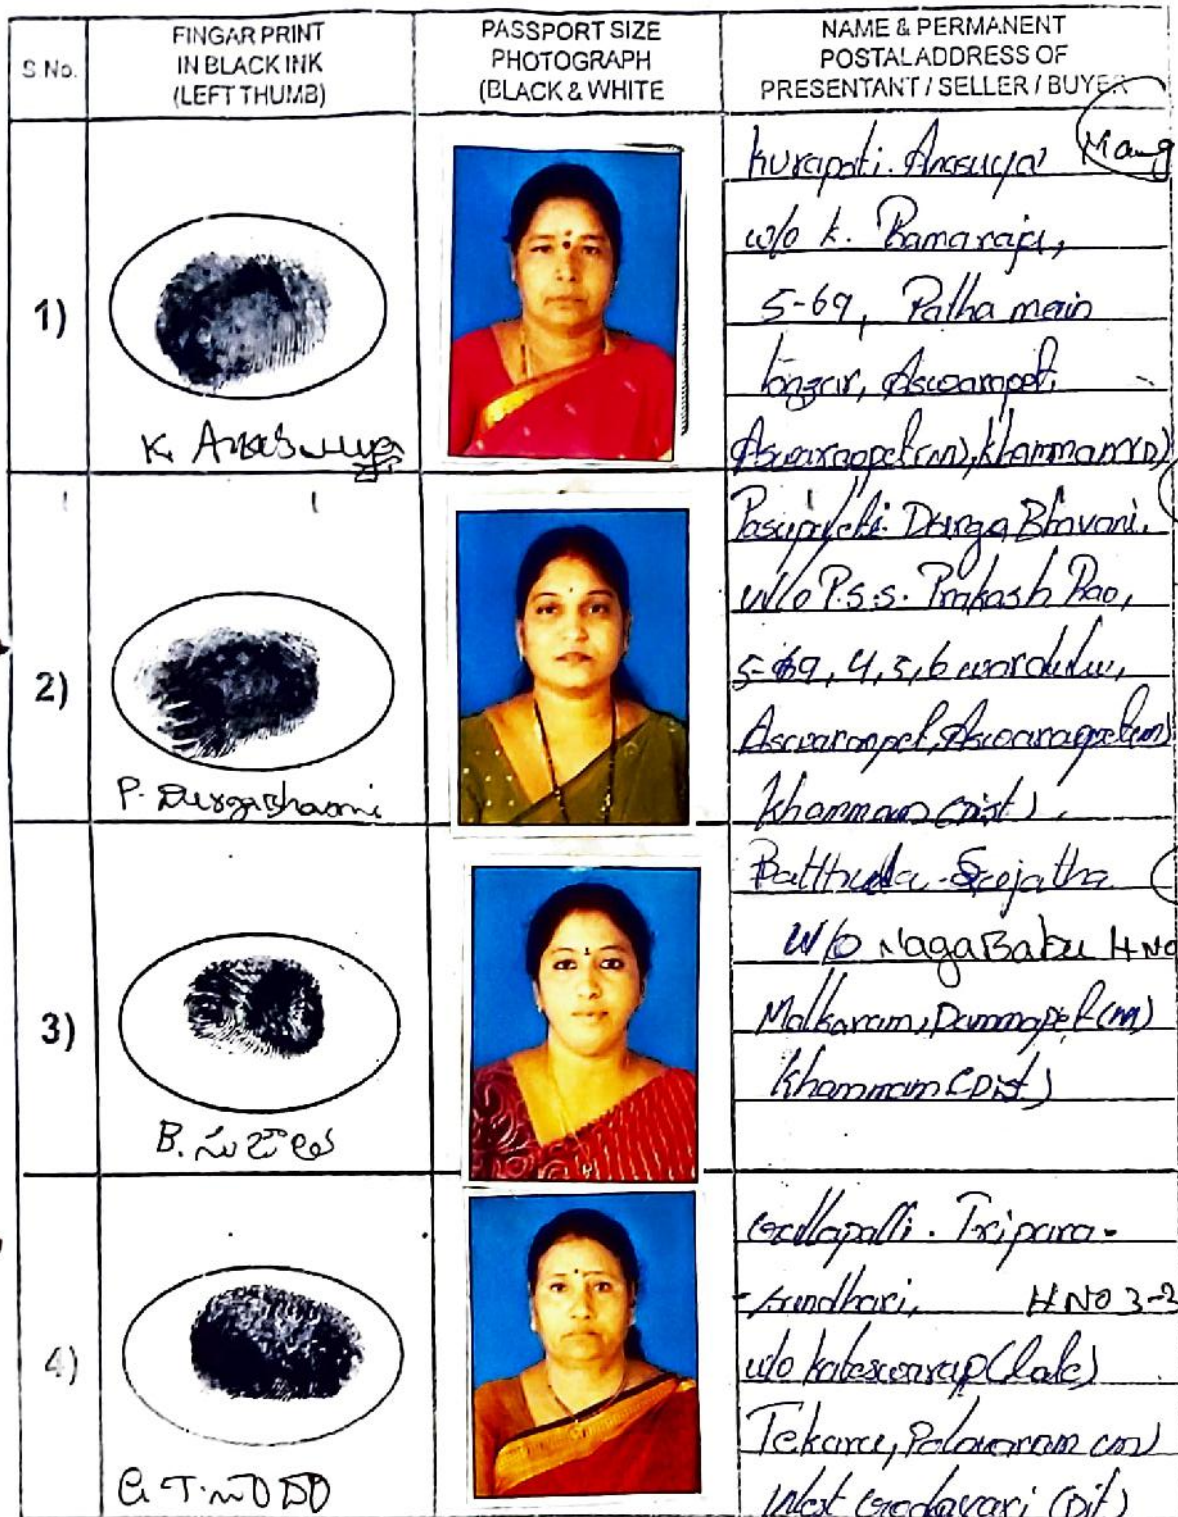 S.No.
FINGAR PRINT
IN BLACK INK
(LEFT THUMB)
PASSPORT SIZE
PHOTOGRAPH
(BLACK & WHITE
NAME & PERMANENT
POSTAL ADDRESS OF
PRESENTANT / SELLER / BUYER
1)
K.
Kurapati. Anasuya
w/o K. Ramaraju,
5-69, Patha main
bazar, Aswaraopet,
Aswaraopet (m), Khammam (D)
2)
P. Durga Bhavani
Durga Bhavani.
W/o P.S.S. Prakash Rao,
5-69, 4, 5, 6 wardulu,
Aswaraopet, Aswaraopet (m)
Khammam (Dist).
3)
B. సుజాత
Sujatha
W/o NagaBabu H NO
Malkaram, Dammapet (m)
Khammam (Dist)
4)
G. T.
Gollapalli. Tripura-
-sundhari, H NO 3-2
w/o (late)
Tekuru, Polavaram (m)
West Godavari (Dit)